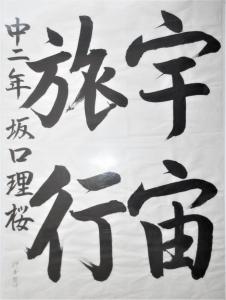 宇宙
旅行
中二年 坂口理桜